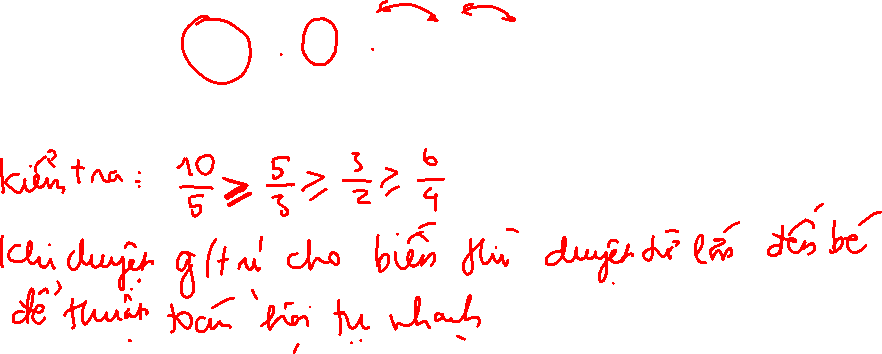 kiểm tra: 10/5 ≥ 5/3 ≥ 3/2 ≥ 6/4
Khi duyệt g/trị cho biến thì duyệt từ lớn đến bé
để thuật toán hội tụ nhanh